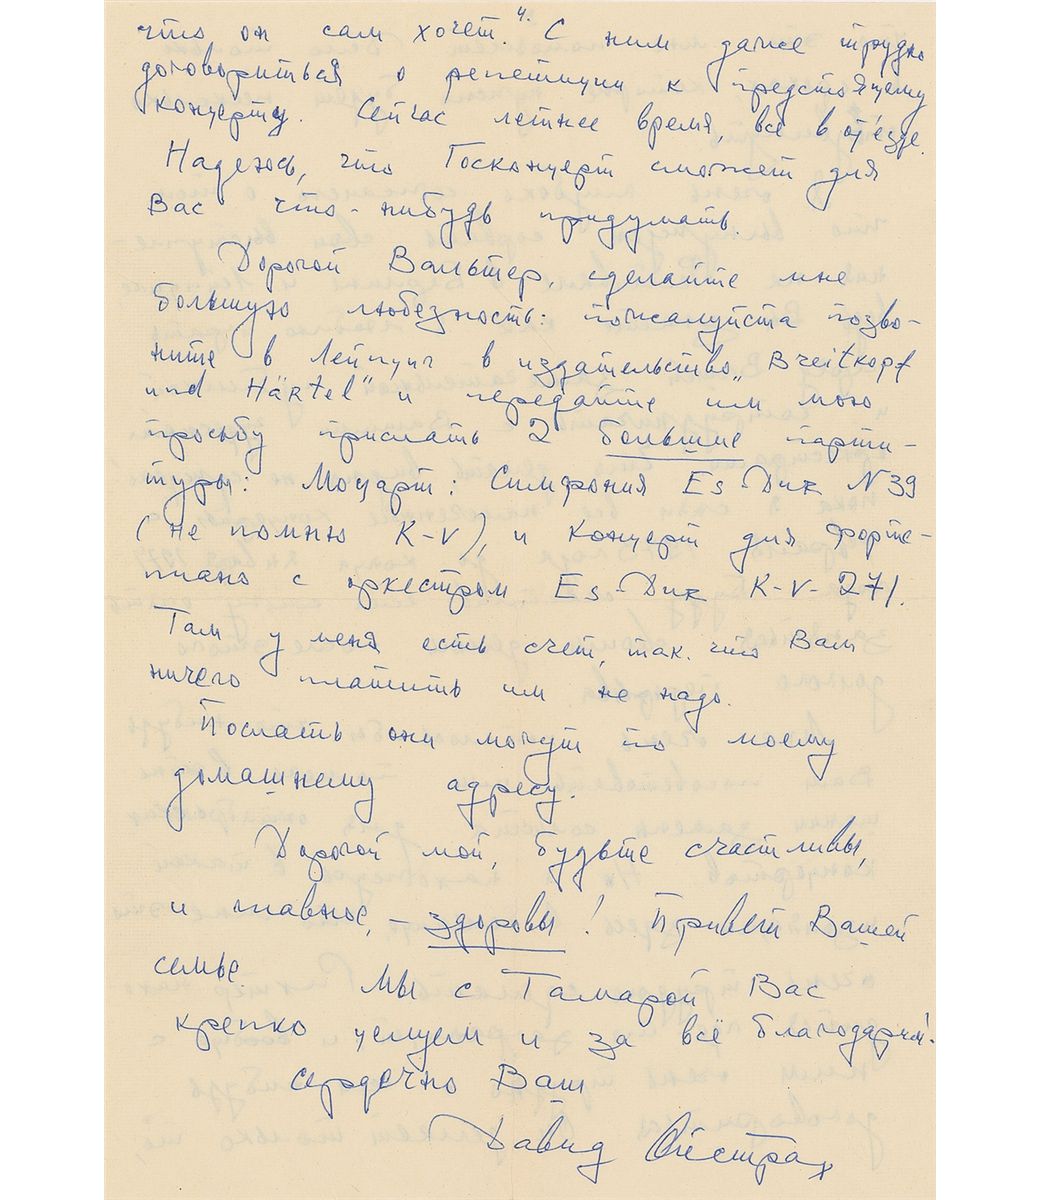 4.
что он сам хочет. С ним даже трудно
договориться о репетиции к предстоящему
концерту. Сейчас летнее время, всё в отъезде.
Надеюсь, что Госконцерт сможет для
Вас что-нибудь придумать.
Дорогой Вальтер, сделайте мне
большую любезность: пожалуйста позво-
ните в Лейпциг в издательство „Breitkopf
und Härtel" и передайте им мою
просьбу прислать 2 большие парти-
туры: Моцарт: Симфония Es-Dur N 39
(не помню K-V), и Концерт для форте-
пиано с оркестром Es-Dur K-V-271.
Там у меня есть счет, так что Вам
ничего платить им не надо.
Послать они могут по моему
домашнему адресу.
Дорогой мой, будьте счастливы,
и главное, – здоровы! Привет Вашей
семье. Мы с Тамарой Вас
крепко целуем и за всё благодарим!
Сердечно Ваш
Давид Ойстрах